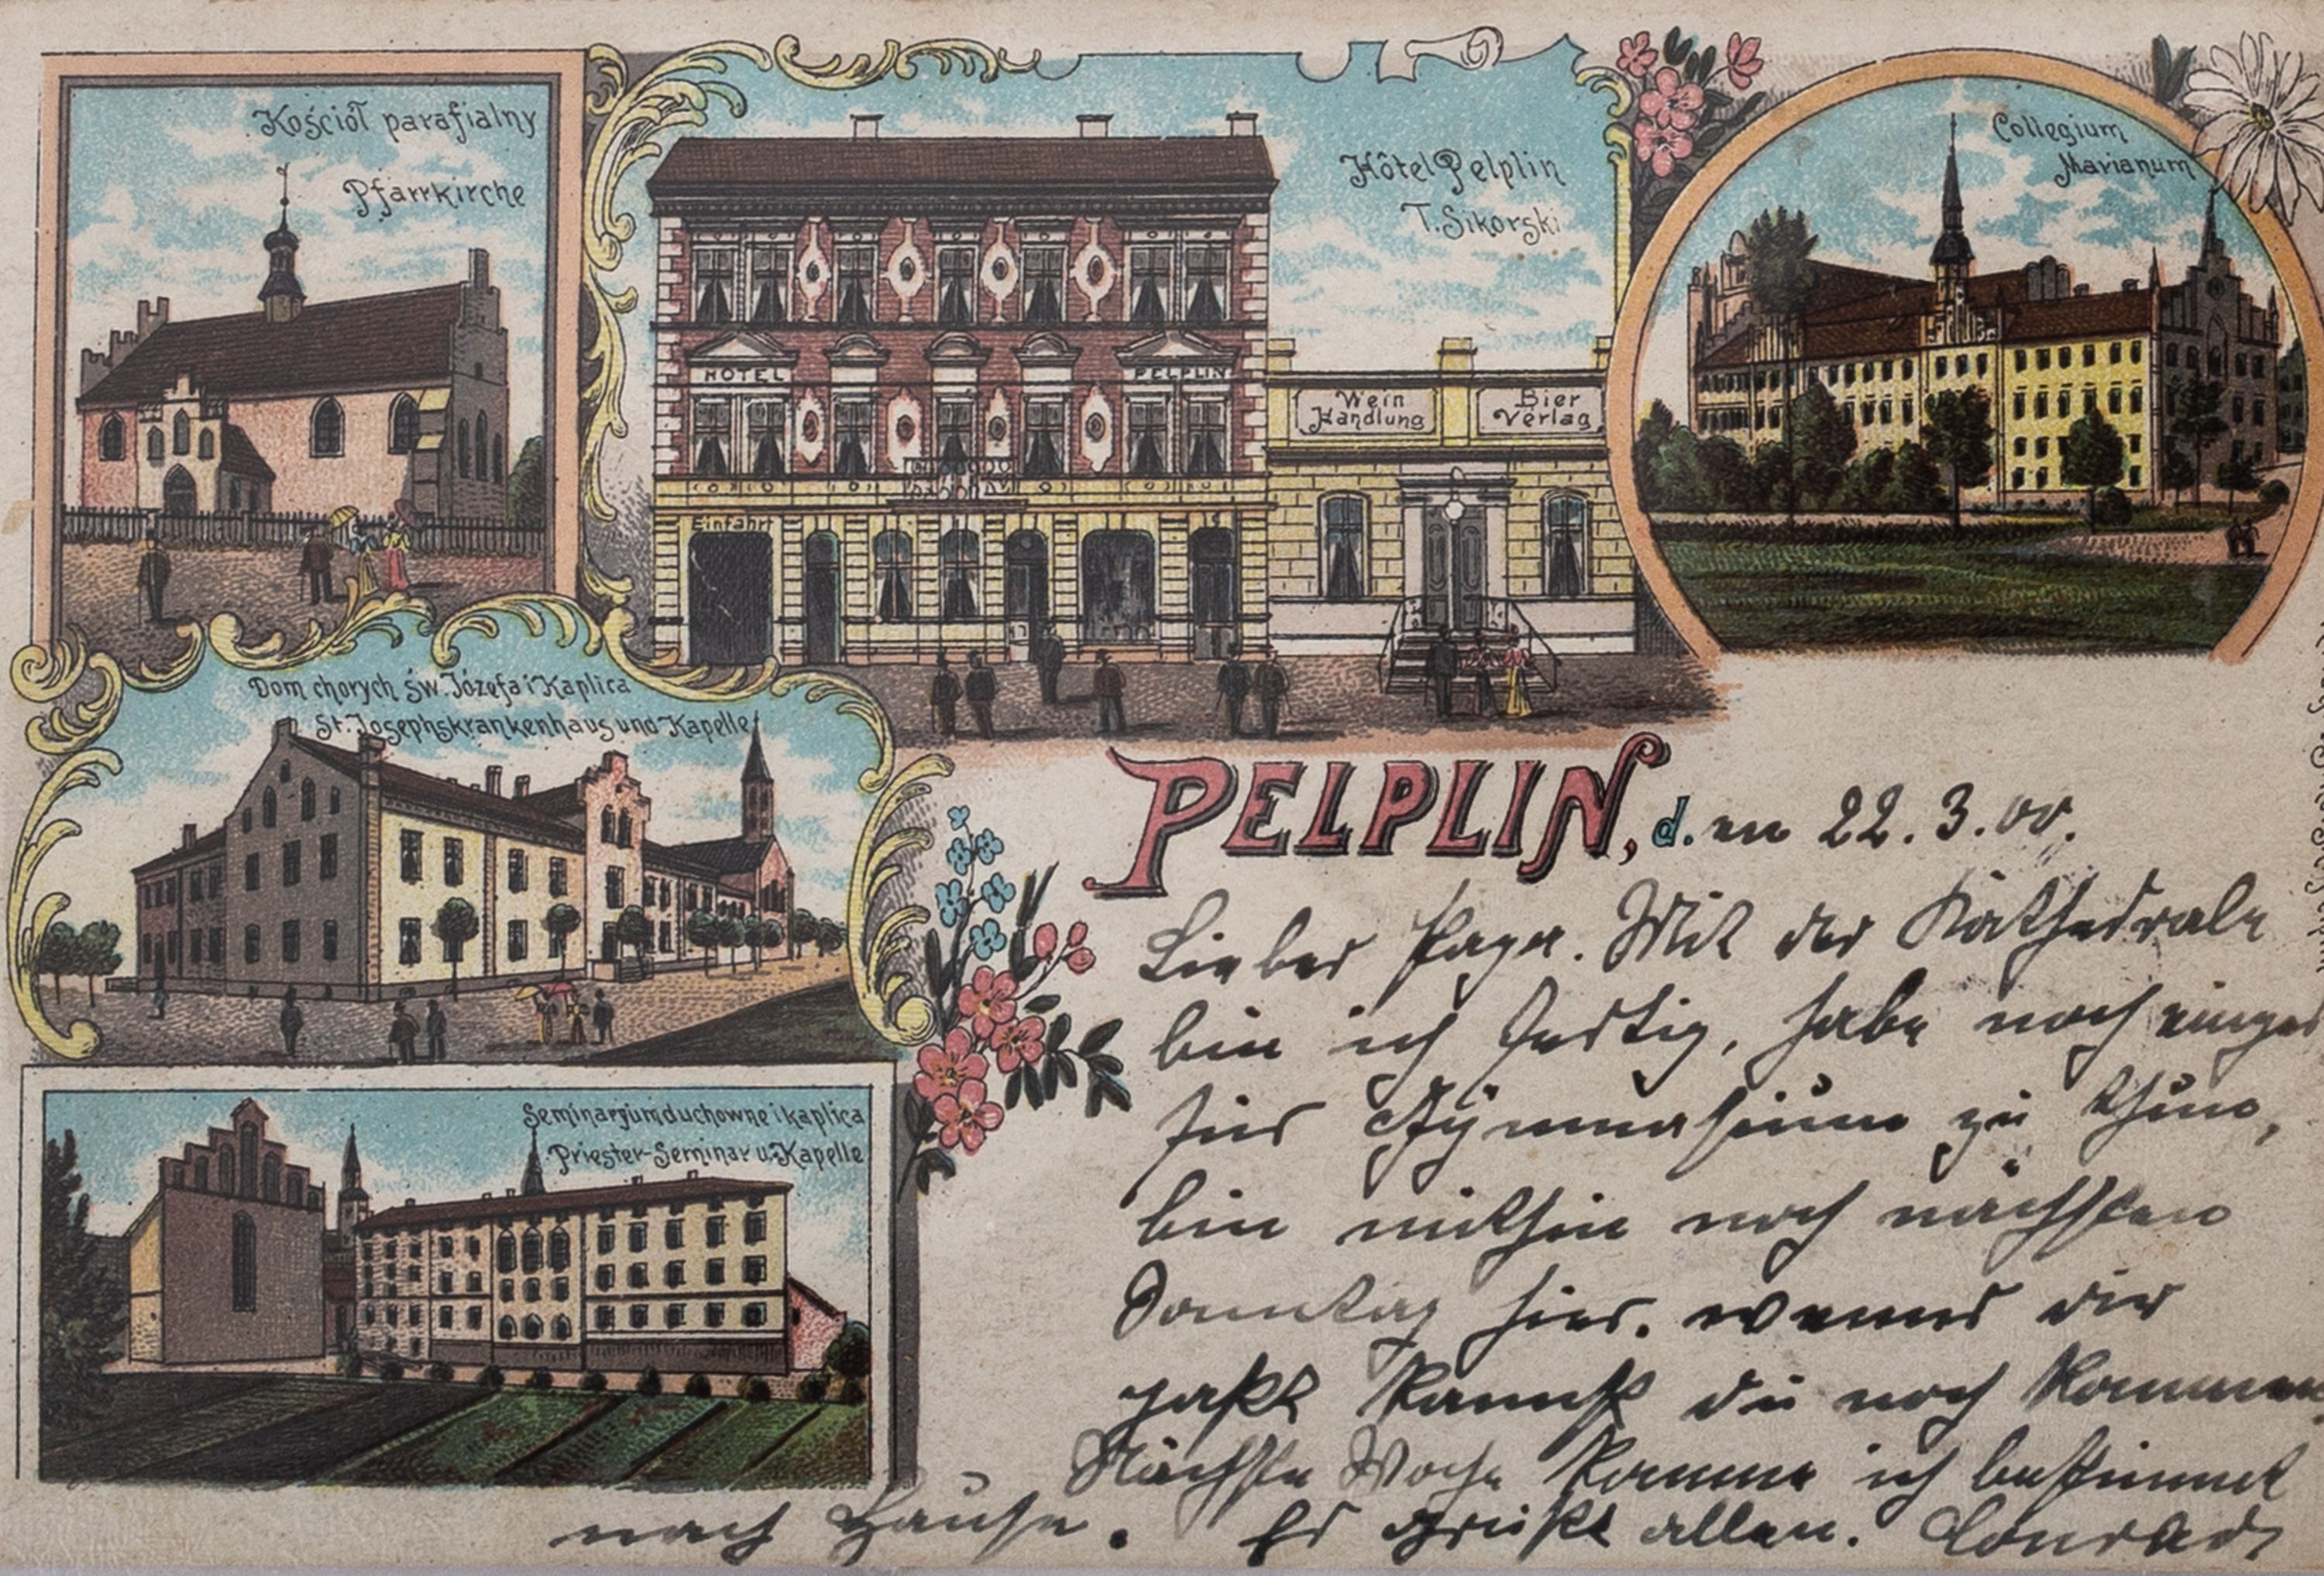 Kościół parafialny
Pfarrkirche
Hôtel Pelplin
T. Sikorski
Collegium
Marianum
HOTEL PELPLIN
Wein
Handlung
Bier
Verlag
Einfahrt
Dom chorych św. Józefa i Kaplica
St. Josephskrankenhaus und Kapelle
Seminarjum duchowne i kaplica
Priester-Seminar u. Kapelle
PELPLIN, d. en 22.3.00.
Lieber Papa. Mit der Kathedrale
bin ich fertig, habe noch
für Gymnasium zu thun,
bin mithin noch nächsten
Sonntag hier. wenns dir
paßt kannst du noch kommen
Nächste Woche komme ich bestimmt
nach Hause. Es grüßt allen. Conrad